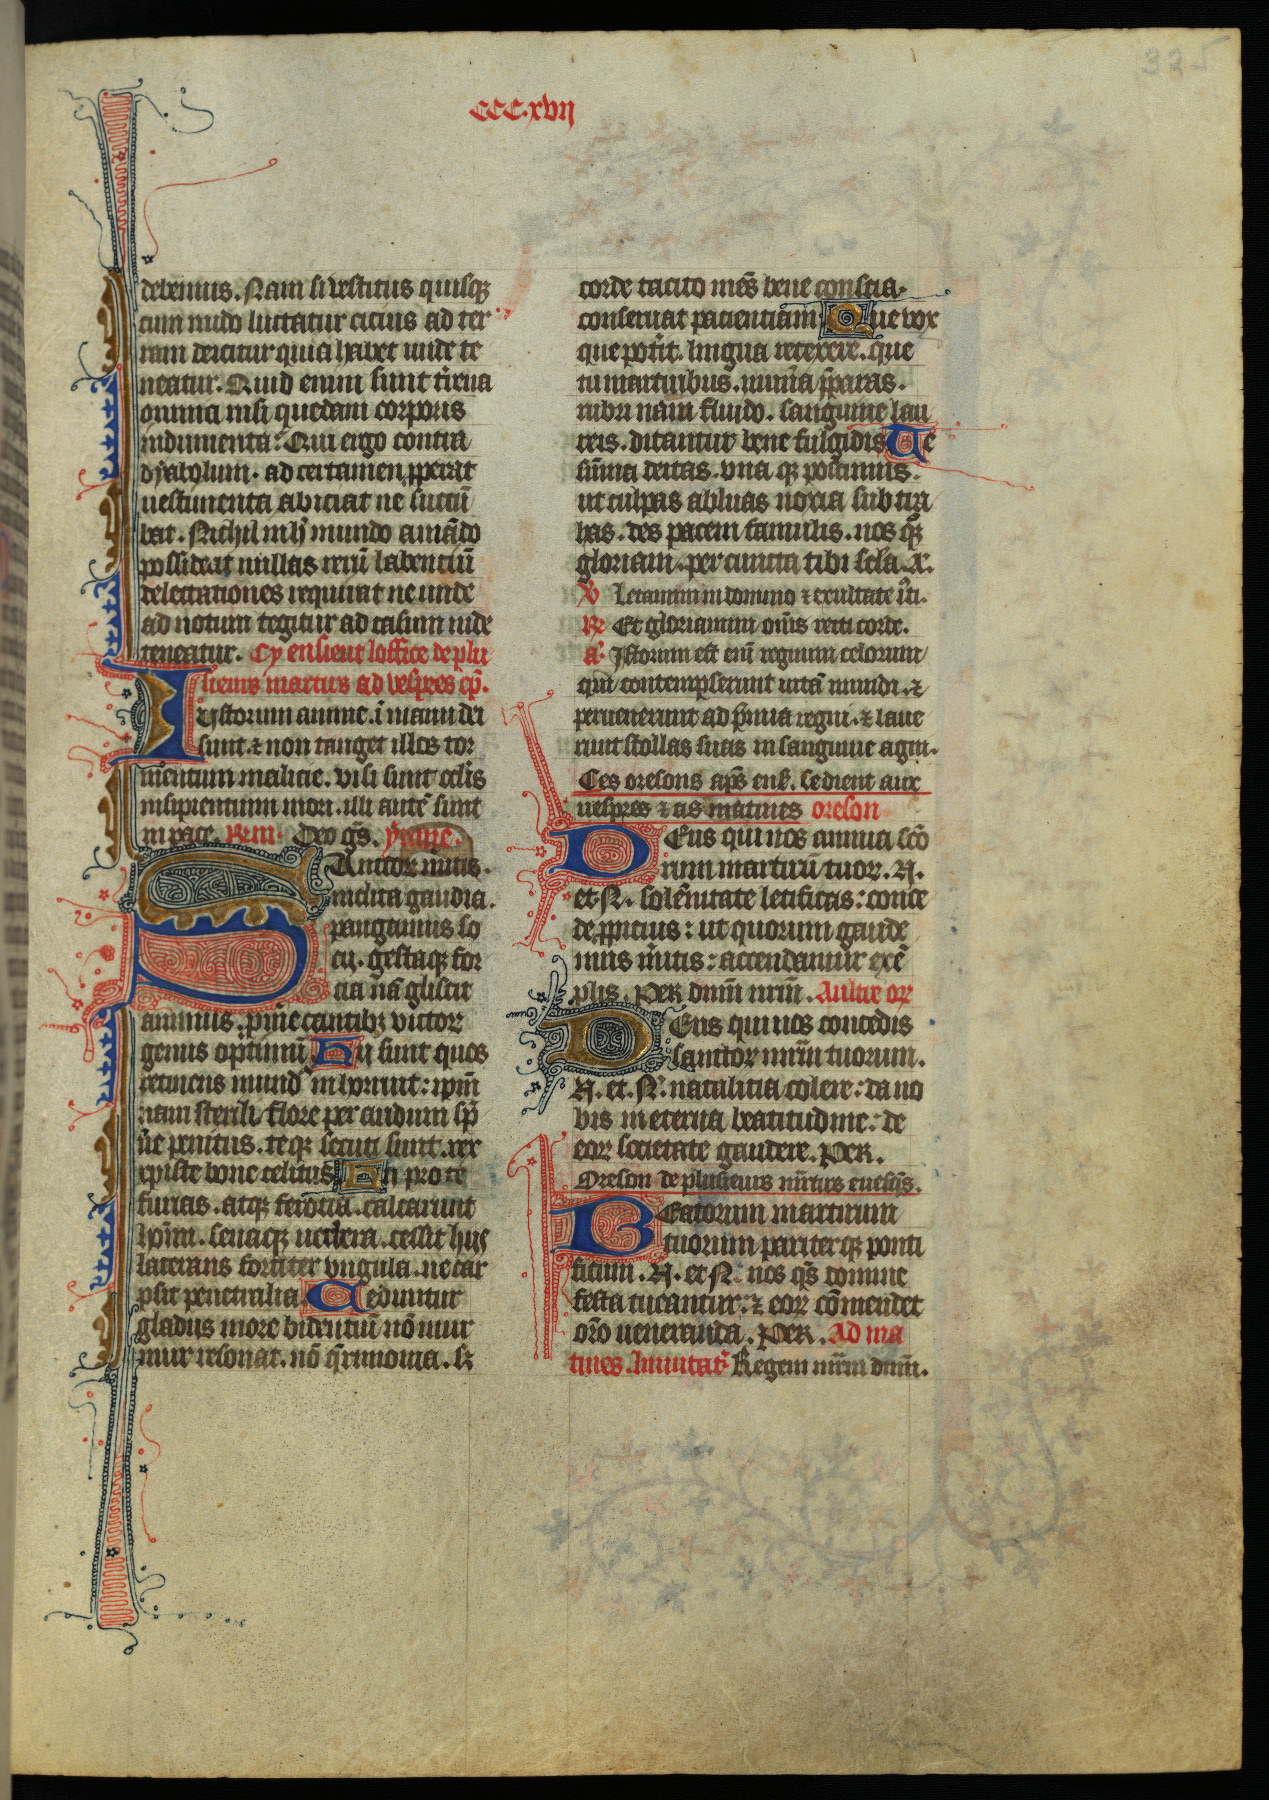 CCC.xvij
335
debemus. Nam si vestitus quisq̄
cum nudo luctatur citius ad ter
ram deicitur quia habet unde te
neatur. Quid enim sunt t̄rena
omnia nisi quedam corporis
indumenta: Qui ergo contra
dyabolum. ad certamen p̱perat
uestimenta abiciat ne succū
bat. Nichil in hͦ mundo amādo
possideat nullas rerū labentiū
delectationes requirat ne unde
ad uotum tegitur ad casum inde
teneatur. Cy ensieut loffice de plu
sieurs martirs ad vespres cp̄.
Iustorum anime. ī manu dei
sunt. ⁊ non tanget illos tor
mentum malicie. visi sunt oc̄lis
insipientium mori. illi autē sunt
in pace. Deo gr̄s. ymne.
Sanctor meritis.
inclita gaudia.
pangamus so
cij. gestaq; for
cia nā gliscit
animus. p̄mē cantib; victor
genus optimū Hij sunt quos
retinens mund' inhorruit: ip̄m
nam sterili. flore per aridum sp̄
u̅e penitus. teq; secuti sunt. rex
christe bone celitus Hij pro te
furias. atq; ferocia. calcarunt
hom̄. seuaq; uerbera. cessit hijs
lacerans fortiter vngula. ne car
psit penetralia Ceduntur
gladiis more bidentiū nō mur
mur resonat. nō q̄rimonia. sꝫ
corde tacito mēs bene conscia.
conseruat pacientiam Que vox
que pot̄it. lingua retexere. que
tu martiribus. mun̄a p̄paras.
rubri nam fluido. sanguine lau
reis. ditantur bene fulgidis Te
sūma deitas. vna q; poscimus.
ut culpas abluas noxia subtra
has. des pacem famulis. nos q̄;
gloriam. per cuncta tibi sc̄la. A.
V Letamini in domino ⁊ exultate i̅ti.
R Et gloriamini om̄s recti corde.
a. Istorum est eni̅ regnum celorum
qui contempserunt uitā mundi. ⁊
peruenerunt ad p̄mia regni. ⁊ laue
runt stollas suas in sanguine agni.
Ces oresons aps̄ ens̄. se dient aux
vespres ⁊ as matines oreson
Deus qui nos annua sc̄o
rum martirū tuoꝝ. N.
et. N. solēnitate letificas: conce
de p̱picius: ut quorum gaude
mus m̄itis: accendamur exē
plis. Per dnm̄ nrm̄. Aultre or
Deus qui nos concedis
sanctoꝝ mr̄m tuorum.
N. et. N. natalitia colere: da no
bis in eterna beatitudine: de
eoꝝ societate gaudere. Per.
Oreson de plusieurs m̄rtirs euesqs̄.
Beatorum martirum
tuorum pariterq; ponti
ficum. N. et N. nos qs̄ domine
festa tueantur: ⁊ eoꝝ cōmendet
oro̅ ueneranda. Per. Ad ma
tines. Inuitat' Regem mr̄m dnm̄.